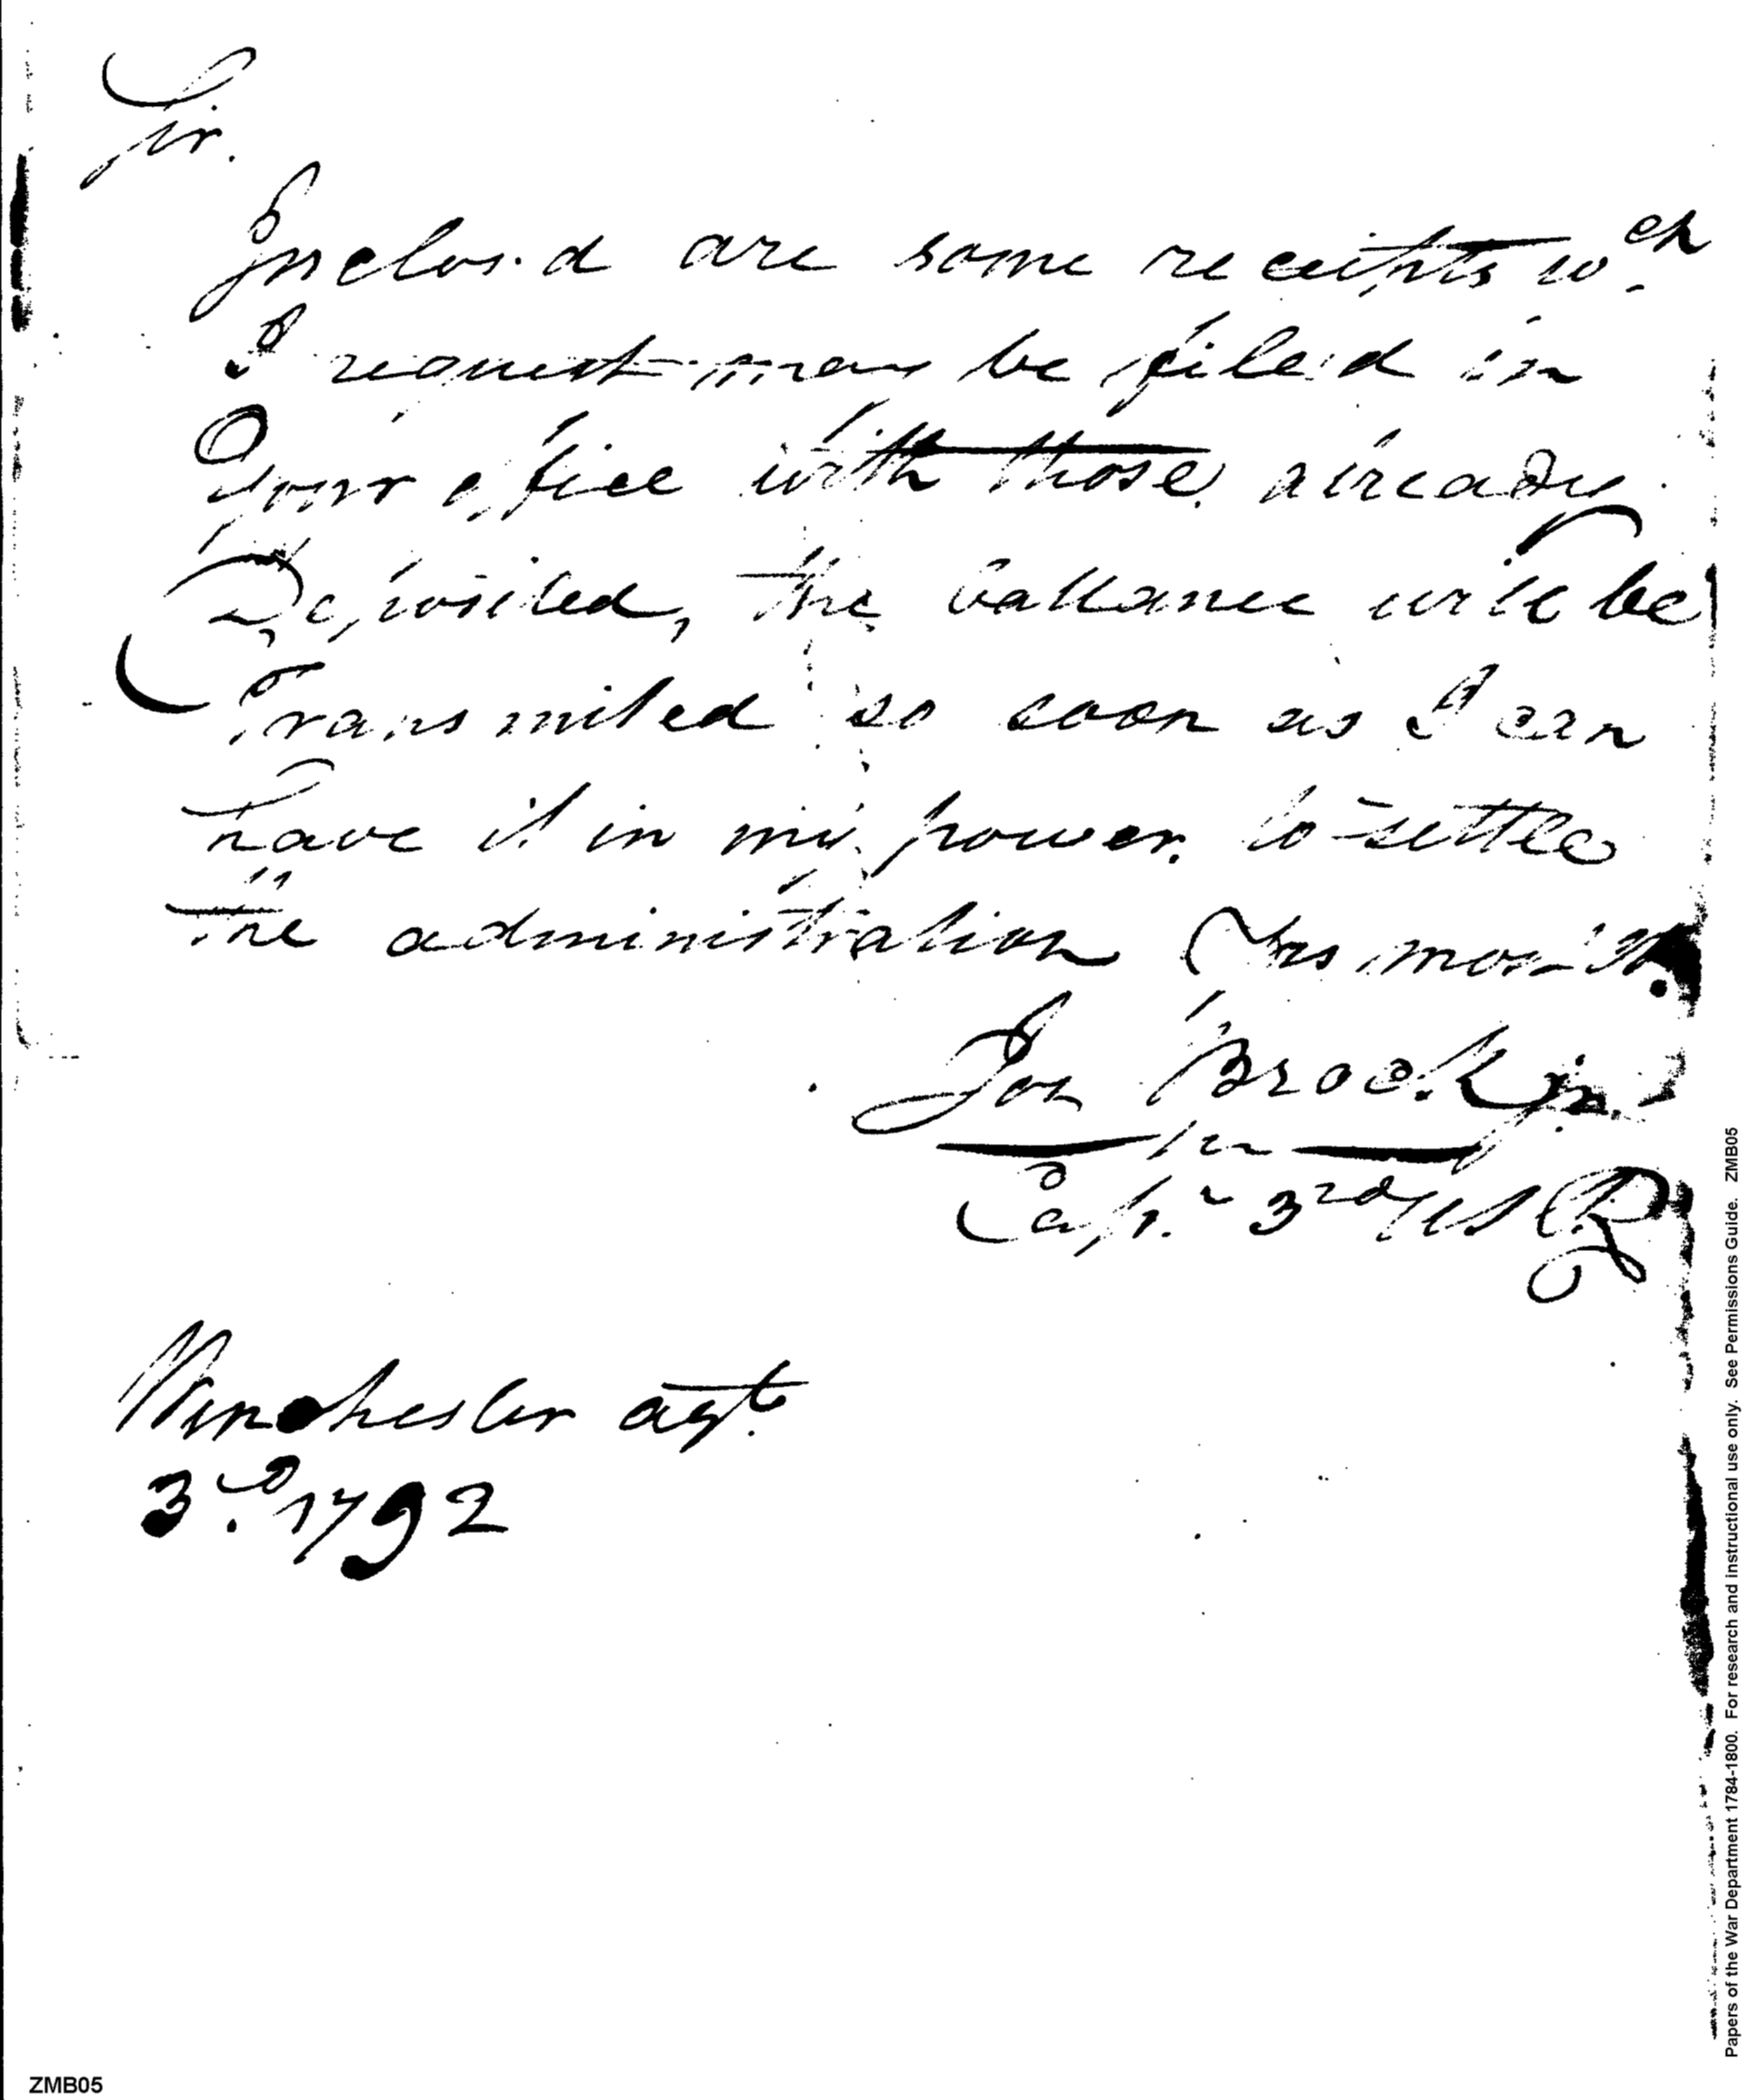 Sir.
Inclos.d are some receipts wch
I request may be filed in
your office with those already
Deposited, the ballance will be
Transmited so soon as I can
have it in my power to settle
the administration
Jos Brock
Capt. 3rd
Winchester agt.
3.d 1792
Papers of the War Department 1784-1800. For research and instructional use only. See Permissions Guide. ZMB05
ZMB05